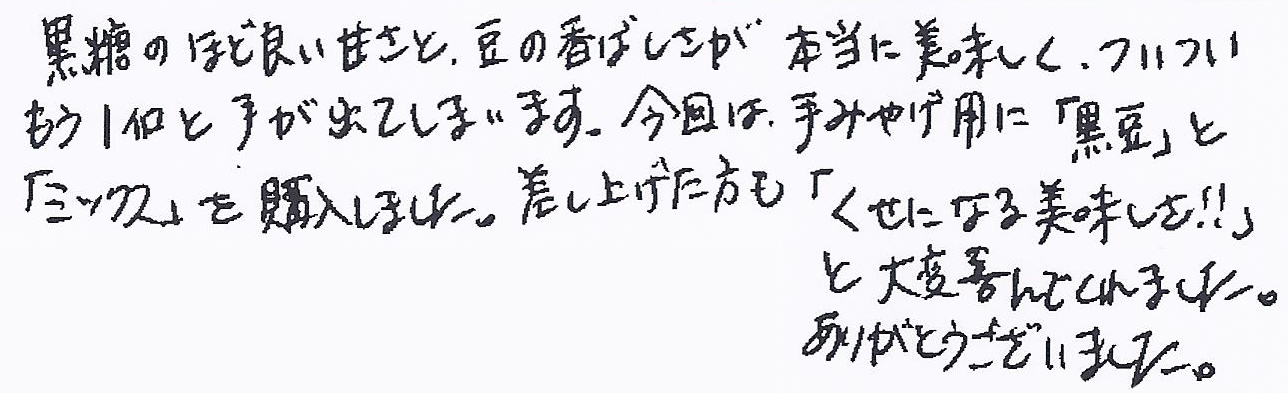 黒糖のほど良い甘さと、豆の香ばしさが本当に美味しく、ついつい
もう1個と手が出てしまいます。今回は、手みやげ用に「黒豆」と
「ミックス」を購入しました。差し上げた方も「くせになる美味しさ!!」
と大変喜んでくれました。
ありがとうございました。